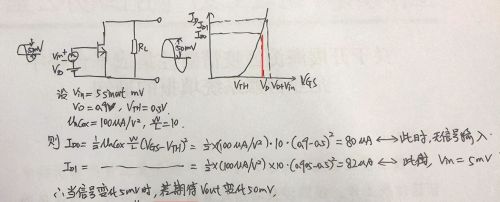 5mV
Vin
VD
RL
50mV
ID
ID1
ID0
VTH
VD
VD+Vin
VGS
设 Vin = 5sinωt mV
VD = 0.9V, VTH = 0.5V.
UnCox = 100UA/V², W/L = 10.
则 ID0 = ½ UnCox W/L (VGS-VTH)² = ½×(100UA/V²)·10·(0.9-0.5)² = 80UA ⟷ 此时, 无信号输入.
ID1 = ½×(100UA/V²)×10·(0.905-0.5)² = 82UA ⟷ 此时, Vin = 5mV
∴当信号变化5mV时, 若期待Vout变化50mV.